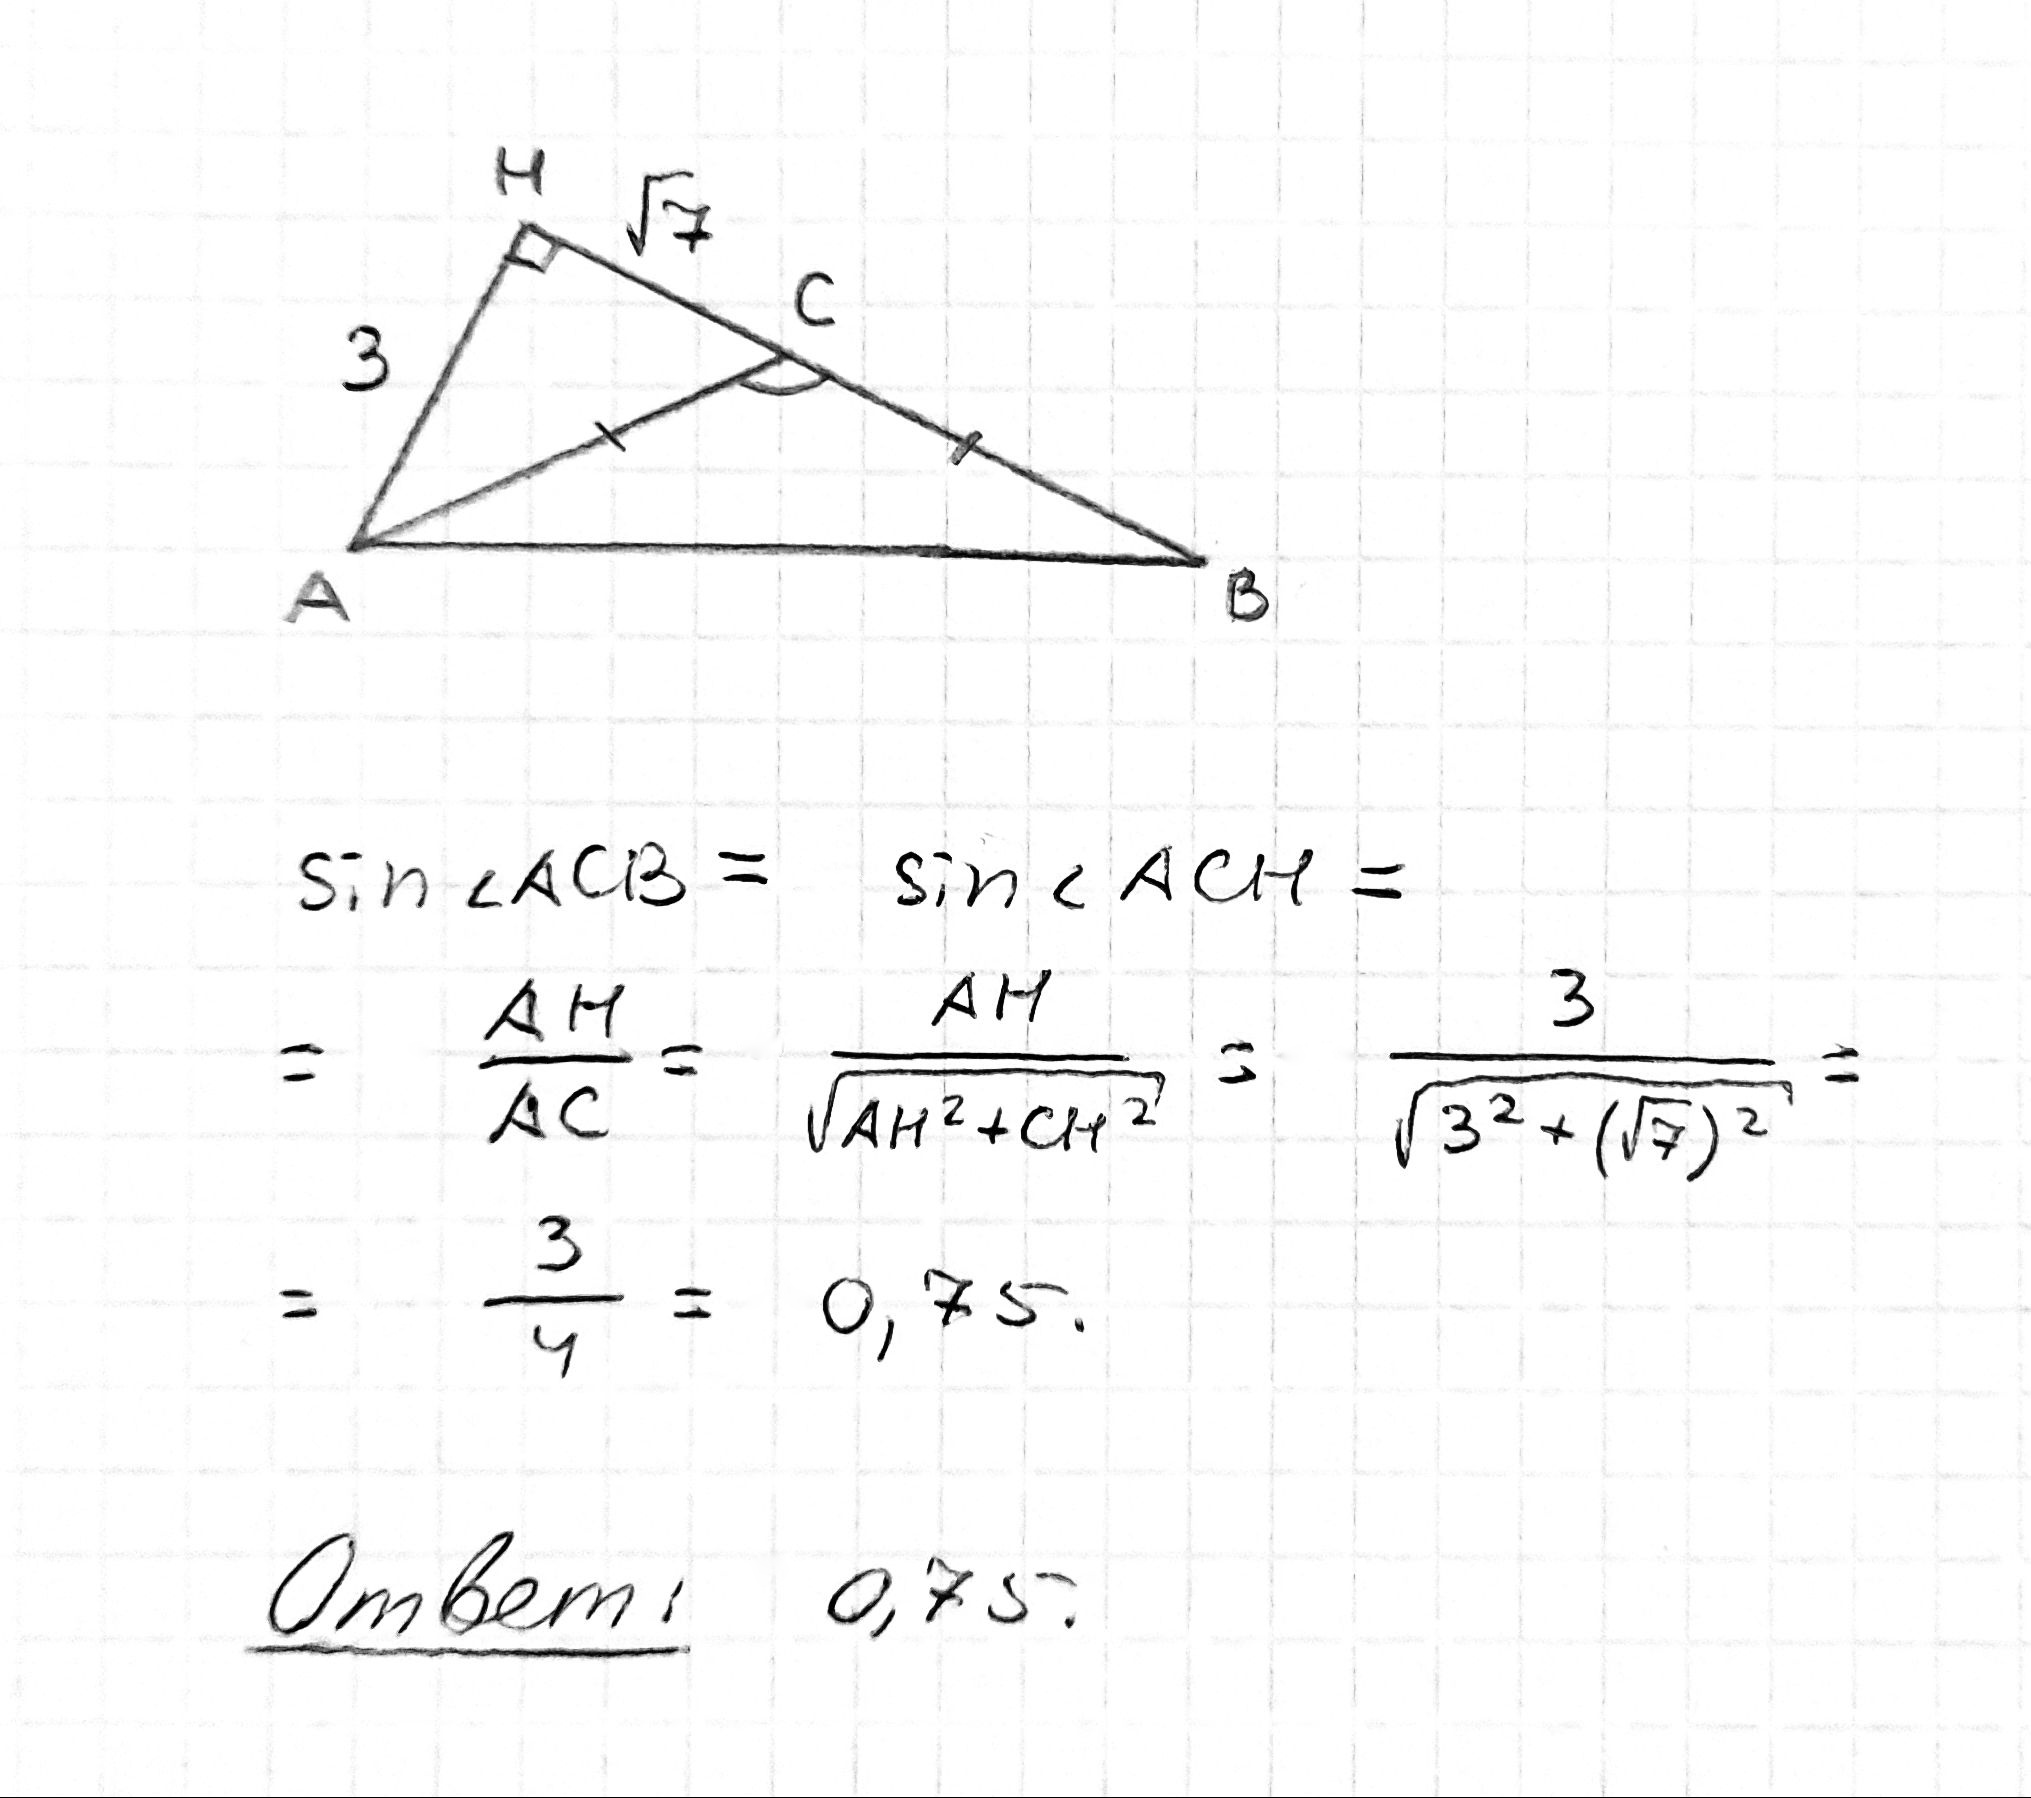 H
√7
C
3
A
B
sin∠ACB = sin∠ACH =
= AH/AC = AH/√(AH²+CH²) = 3/√(3²+(√7)²) =
= 3/4 = 0,75.
Ответ: 0,75.